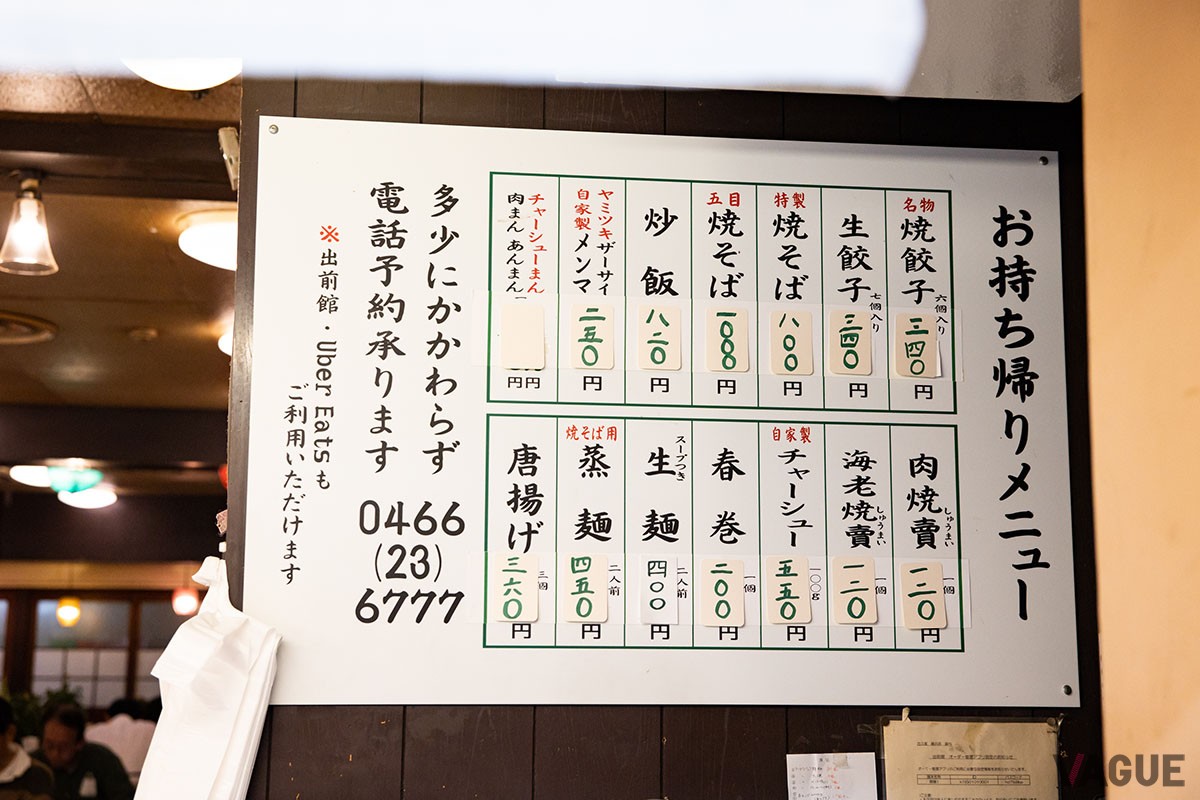 お持ち帰りメニュー
名物
焼餃子
六個入り
三四〇
円
生餃子
七個入り
三四〇
円
特製
焼そば
八〇〇
円
五目
焼そば
一〇〇〇
円
炒飯
八二〇
円
ヤミツキザーサイ
自家製メンマ
二五〇
円
チャーシューまん
肉まん あんまん
円円
肉焼賣
しゅうまい
一個
一二〇
円
海老焼賣
しゅうまい
一個
一二〇
円
自家製
チャーシュー
一〇〇g
五五〇
円
春巻
一個
二〇〇
円
スープつき
生麺
二人前
四〇〇
円
焼そば用
蒸麺
二人前
四五〇
円
唐揚げ
三個
三六〇
円
多少にかかわらず
電話予約承ります
0466
(23)
6777
※出前館・Uber Eatsも
ご利用いただけます
VAGUE